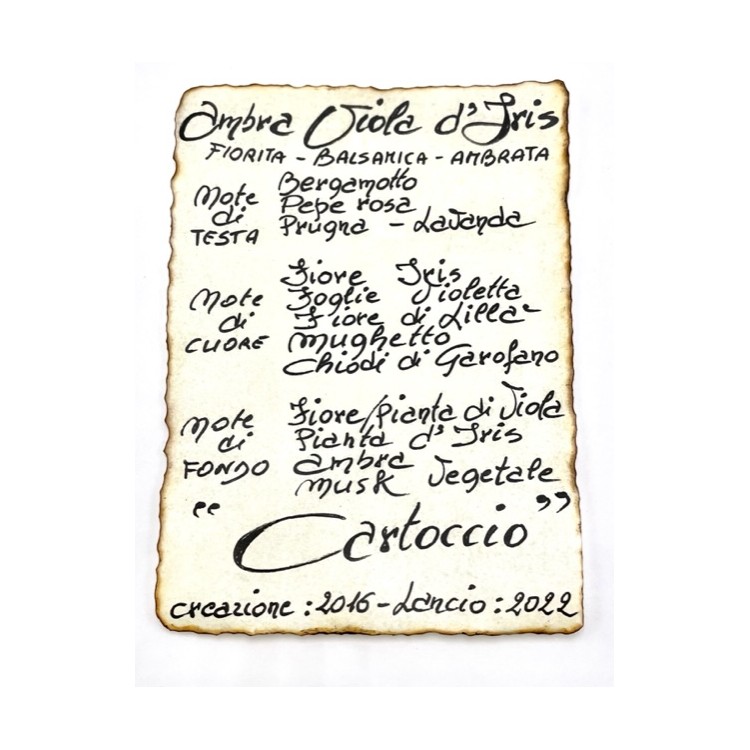 Ambra Viola d'Iris
FIORITA - BALSAMICA - AMBRATA
Note di TESTA
Bergamotto
Pepe rosa
Prugna - Lavanda
Note di CUORE
Fiore Iris
Foglie Violetta
Fiore di Lillà
Mughetto
Chiodi di Garofano
Note di FONDO
Fiore/pianta di Viola
Pianta d'Iris
Ambra
Musk Vegetale
"Cartoccio"
creazione : 2016 - Lancio : 2022